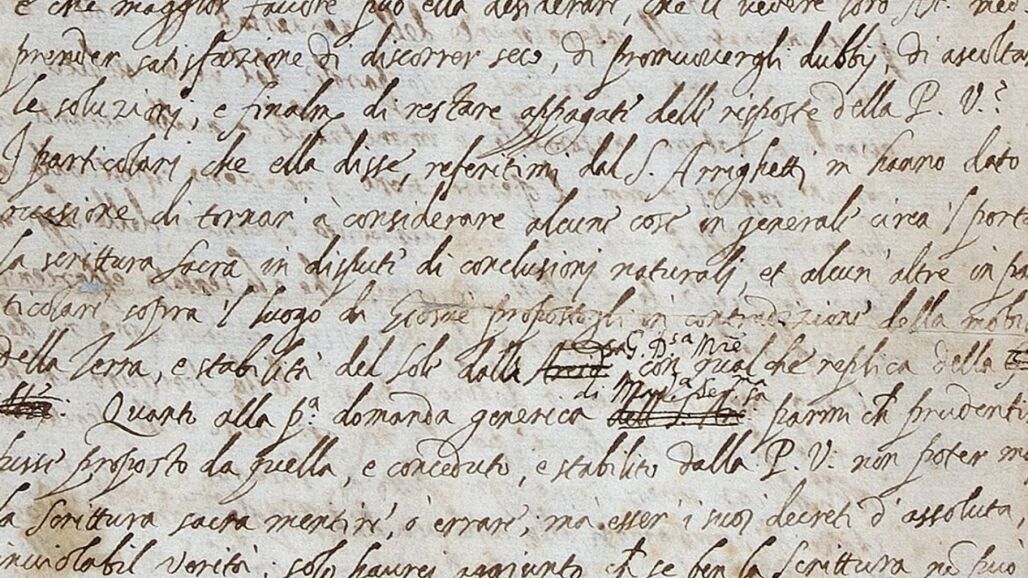 e che maggior favore può ella desiderare, che il vedere loro Al. med
prender satisfazione di discorrer seco, di promuovergli dubbij, di ascoltar
le soluzionj, e finalm. di restare appagate delle risposte della P. V.?
I particolari che ella disse, referitimi dal S. Arrighetti m hanno dato
occasione di tornar' à considerare alcune cose in generale circa 'l portar
la scrittura sacra in dispute di conclusionj naturalj, et alcun' altre in par
ticolare sopra 'l luogo di Giosuè propostogli in contradizione della mobil
della Terra, e stabilità del Sole dalla G. D.sa M.re con qualche replica della
di M.ma Ser.ma
Quanto alla p.a domanda generica parmi ch prudentis
fusse proposto da quella, e conceduto, e stabilito dalla P. V. non poter ma
la Scrittura sacra mentire, ò errare, mà esser' i suoj decreti d' assoluta,
inviolabil verità: solo haurej aggiunto ch se ben la Scrittura nō può